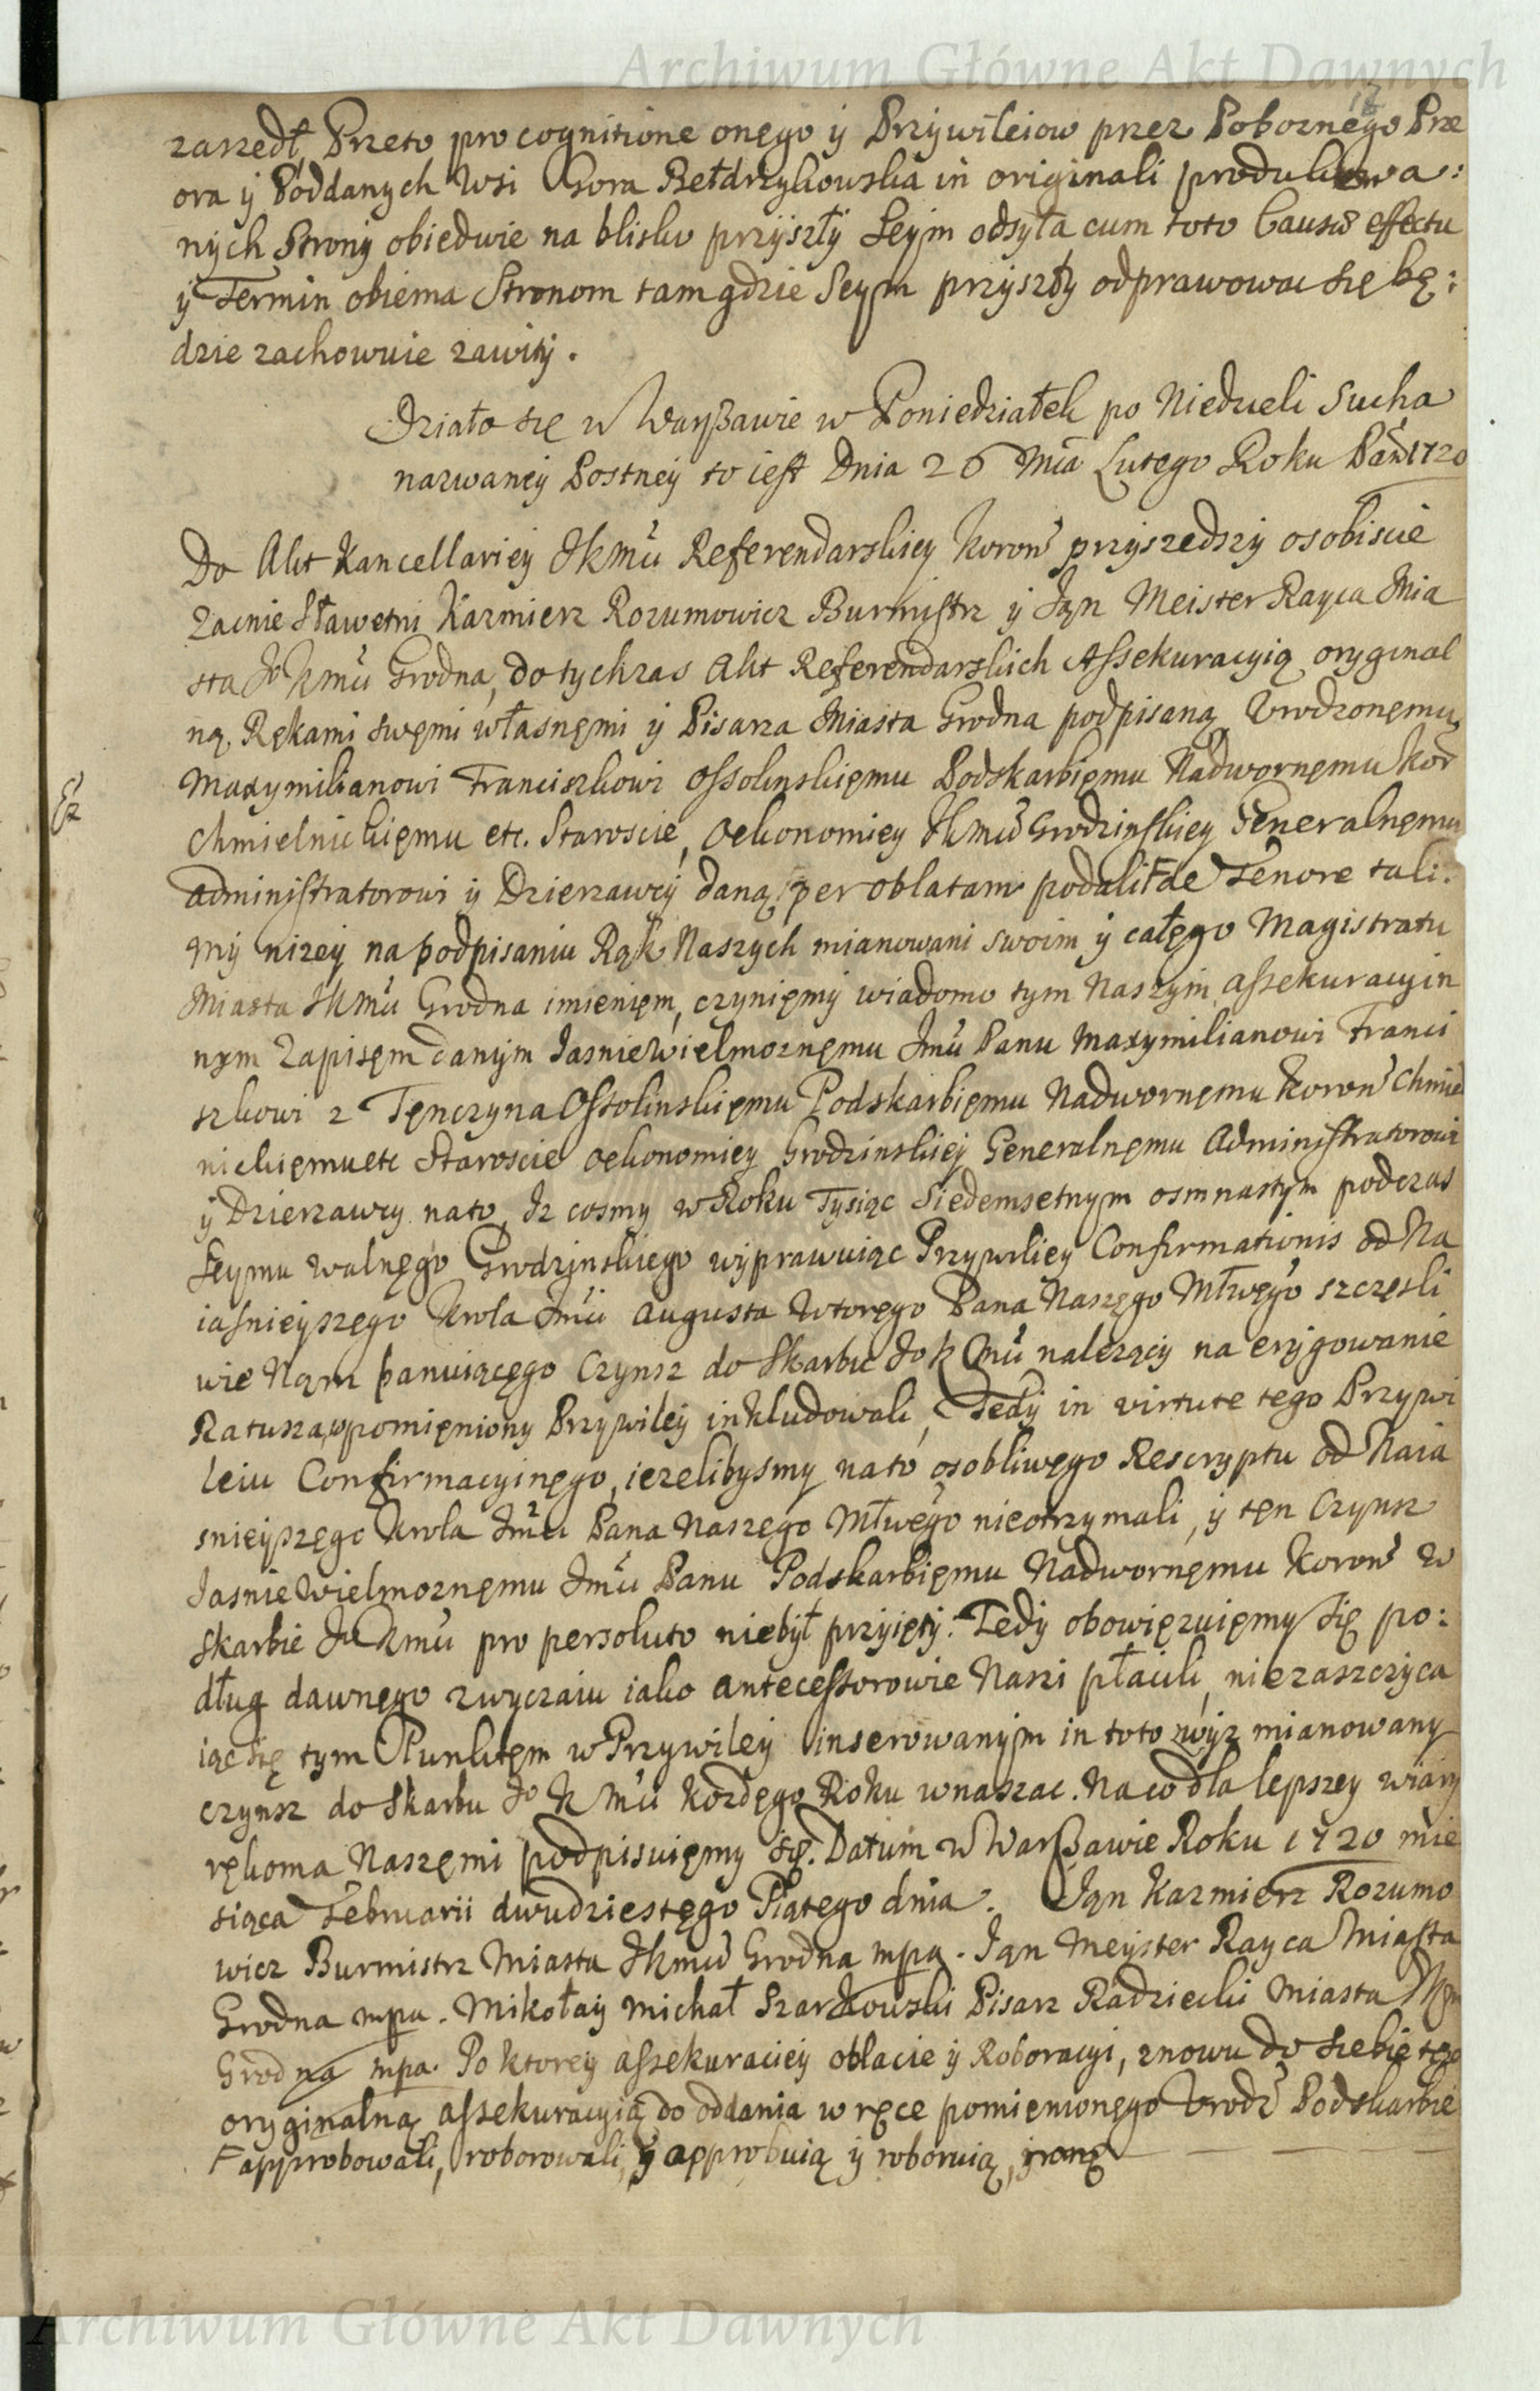 Archiwum Główne Akt Dawnych
zaszedł, Przeto pro cognitione onego ÿ Przywileiow przez Pobożnego Prze
ora ÿ Poddanych Wsi Gora Bełdrzykowska in originali produkowa:
nÿch Stronÿ obiedwie na blisko przÿszłÿ Seÿm odsyła cum toto Causæ effectu
ÿ Termin obiema Stronom tam gdzie Seÿm przÿszłÿ odprawowac się bę:
dzie zachowuie zawitÿ.
Działo się w Warszawie w Poniedziałek po Niedzieli Sucha
nazwaneÿ Postneÿ to iest Dnia 26 Mca Lutego Roku Pań. 1720
Do Akt Kancellarieÿ JKmći Referendarskieÿ Koron przÿszedszÿ osobiscie
Zacnie Sławetni Kazmierz Rozumowicz Burmistrz ÿ Jąn Meister Rayca Mia
sta Jo Kmći Grodna, do tychzas Akt Referendarskich Assekuracyią orÿginal
ną, Rękami swęmi własnęmi ÿ Pisarza Miasta Grodna podpisaną Vrodzonęmu
Maxymilianowi Franciszkowi Ossolinskięmu Podskarbięmu Nadwornęmu Kor
Chmielnickięmu etc. Staroscie, Oekonomiey JKmći Grodzinskiey Generalnęmu
Administratorowi ÿ Dzierzawcÿ daną, per oblatam podali F de Tenore tali.
Mÿ nizeÿ na podpisaniu Rąk Naszÿch mianowani swoim ÿ całęgo Magistratu
Miasta JKmći Grodna imienięm, czynięmÿ wiadomo tym Naszÿm assekuracyin
nÿm Zapisęm danÿm JasnieWielmoznęmu Jmći Panu Maxymilianowi Franci
szkowi z Tęnczyna Ossolinskięmu Podskarbięmu Nadwornęmu Koron Chmiel
nickięmu etc Staroscie Oekonomiey Grodzinskieÿ Generalnęmu Administratorowi
ÿ Dzierzawcy na to, Iz cosmy w Roku Tysiąc Siedemsetnym osmnastÿm podczas
Seymu walnęgo Grodzinskiego wyprawuiąc Przywiley Confirmationis od Na
iasnieÿszęgo Krola Jmći Augusta Wtoręgo Pana Naszęgo Młwęgo szczęsli
wie Nąm panuiącęgo Czynsz do Skarbu Jo K Mći nalezącÿ na erÿgowanie
Ratusza, wpomięnionÿ Przywileÿ inkludowali, Tedÿ in virtute tego Przywi
leiu Confirmacyinęgo, iezelibysmy na to osobliwęgo Rescryptu od Naia
snieÿszęgo Krola Jmći Pana Naszęgo Młwęgo nieotrzymali, ÿ tęn Czynsz
JasnieWielmoznęmu Jmći Panu Podskarbięmu Nadwornęmu Koron w
Skarbie Jo Kmći pro persoluto niebÿł przÿiętÿ: Tedÿ obowięzuięmy się po:
dług dawnęgo zwyczaiu iako Antecessorowie Naszi płacili, niezaszczÿca
iąc się tym Punktęm w Przywileÿ inserowanÿm in toto wÿz mianowanÿ
czynsz do Skarbu Jo K Mći kozdęgo Roku wnaszac. Na co dla lepszey wiarÿ
rękoma Naszęmi podpisuięmy się. Datum w Warszawie Roku 1720 mie
siąca Februarii dwudziestęgo Piątego dnia. Jąn Kazmierz Rozumo
wicz Burmistrz Miasta JKmći Grodna mpa. Jąn Meÿster Rayca Miasta
Grodna mpa. Mikołaÿ Michał Szarkowski Pisarz Radziecki Miasta JKm
Grodna mpa. Po ktorey assekuracieÿ oblacie ÿ Roboracyi, znowu do siebie tęz
orÿginalną assekuracyią do oddania w ręce pomienionęgo Vrodz Podskarbie
F approbowali, roborowali, ÿ approbuią ÿ roboruią,
Archiwum Główne Akt Dawnych